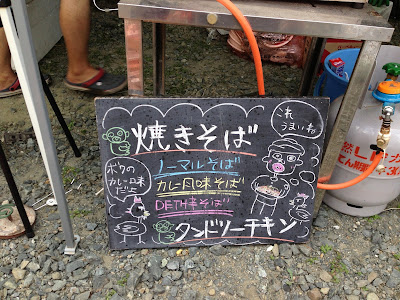 焼きそば
ノーマルそば
カレー風味そば
DETHキそば
タンドリーチキン
これ
うまいわ
ボクの
カレー味